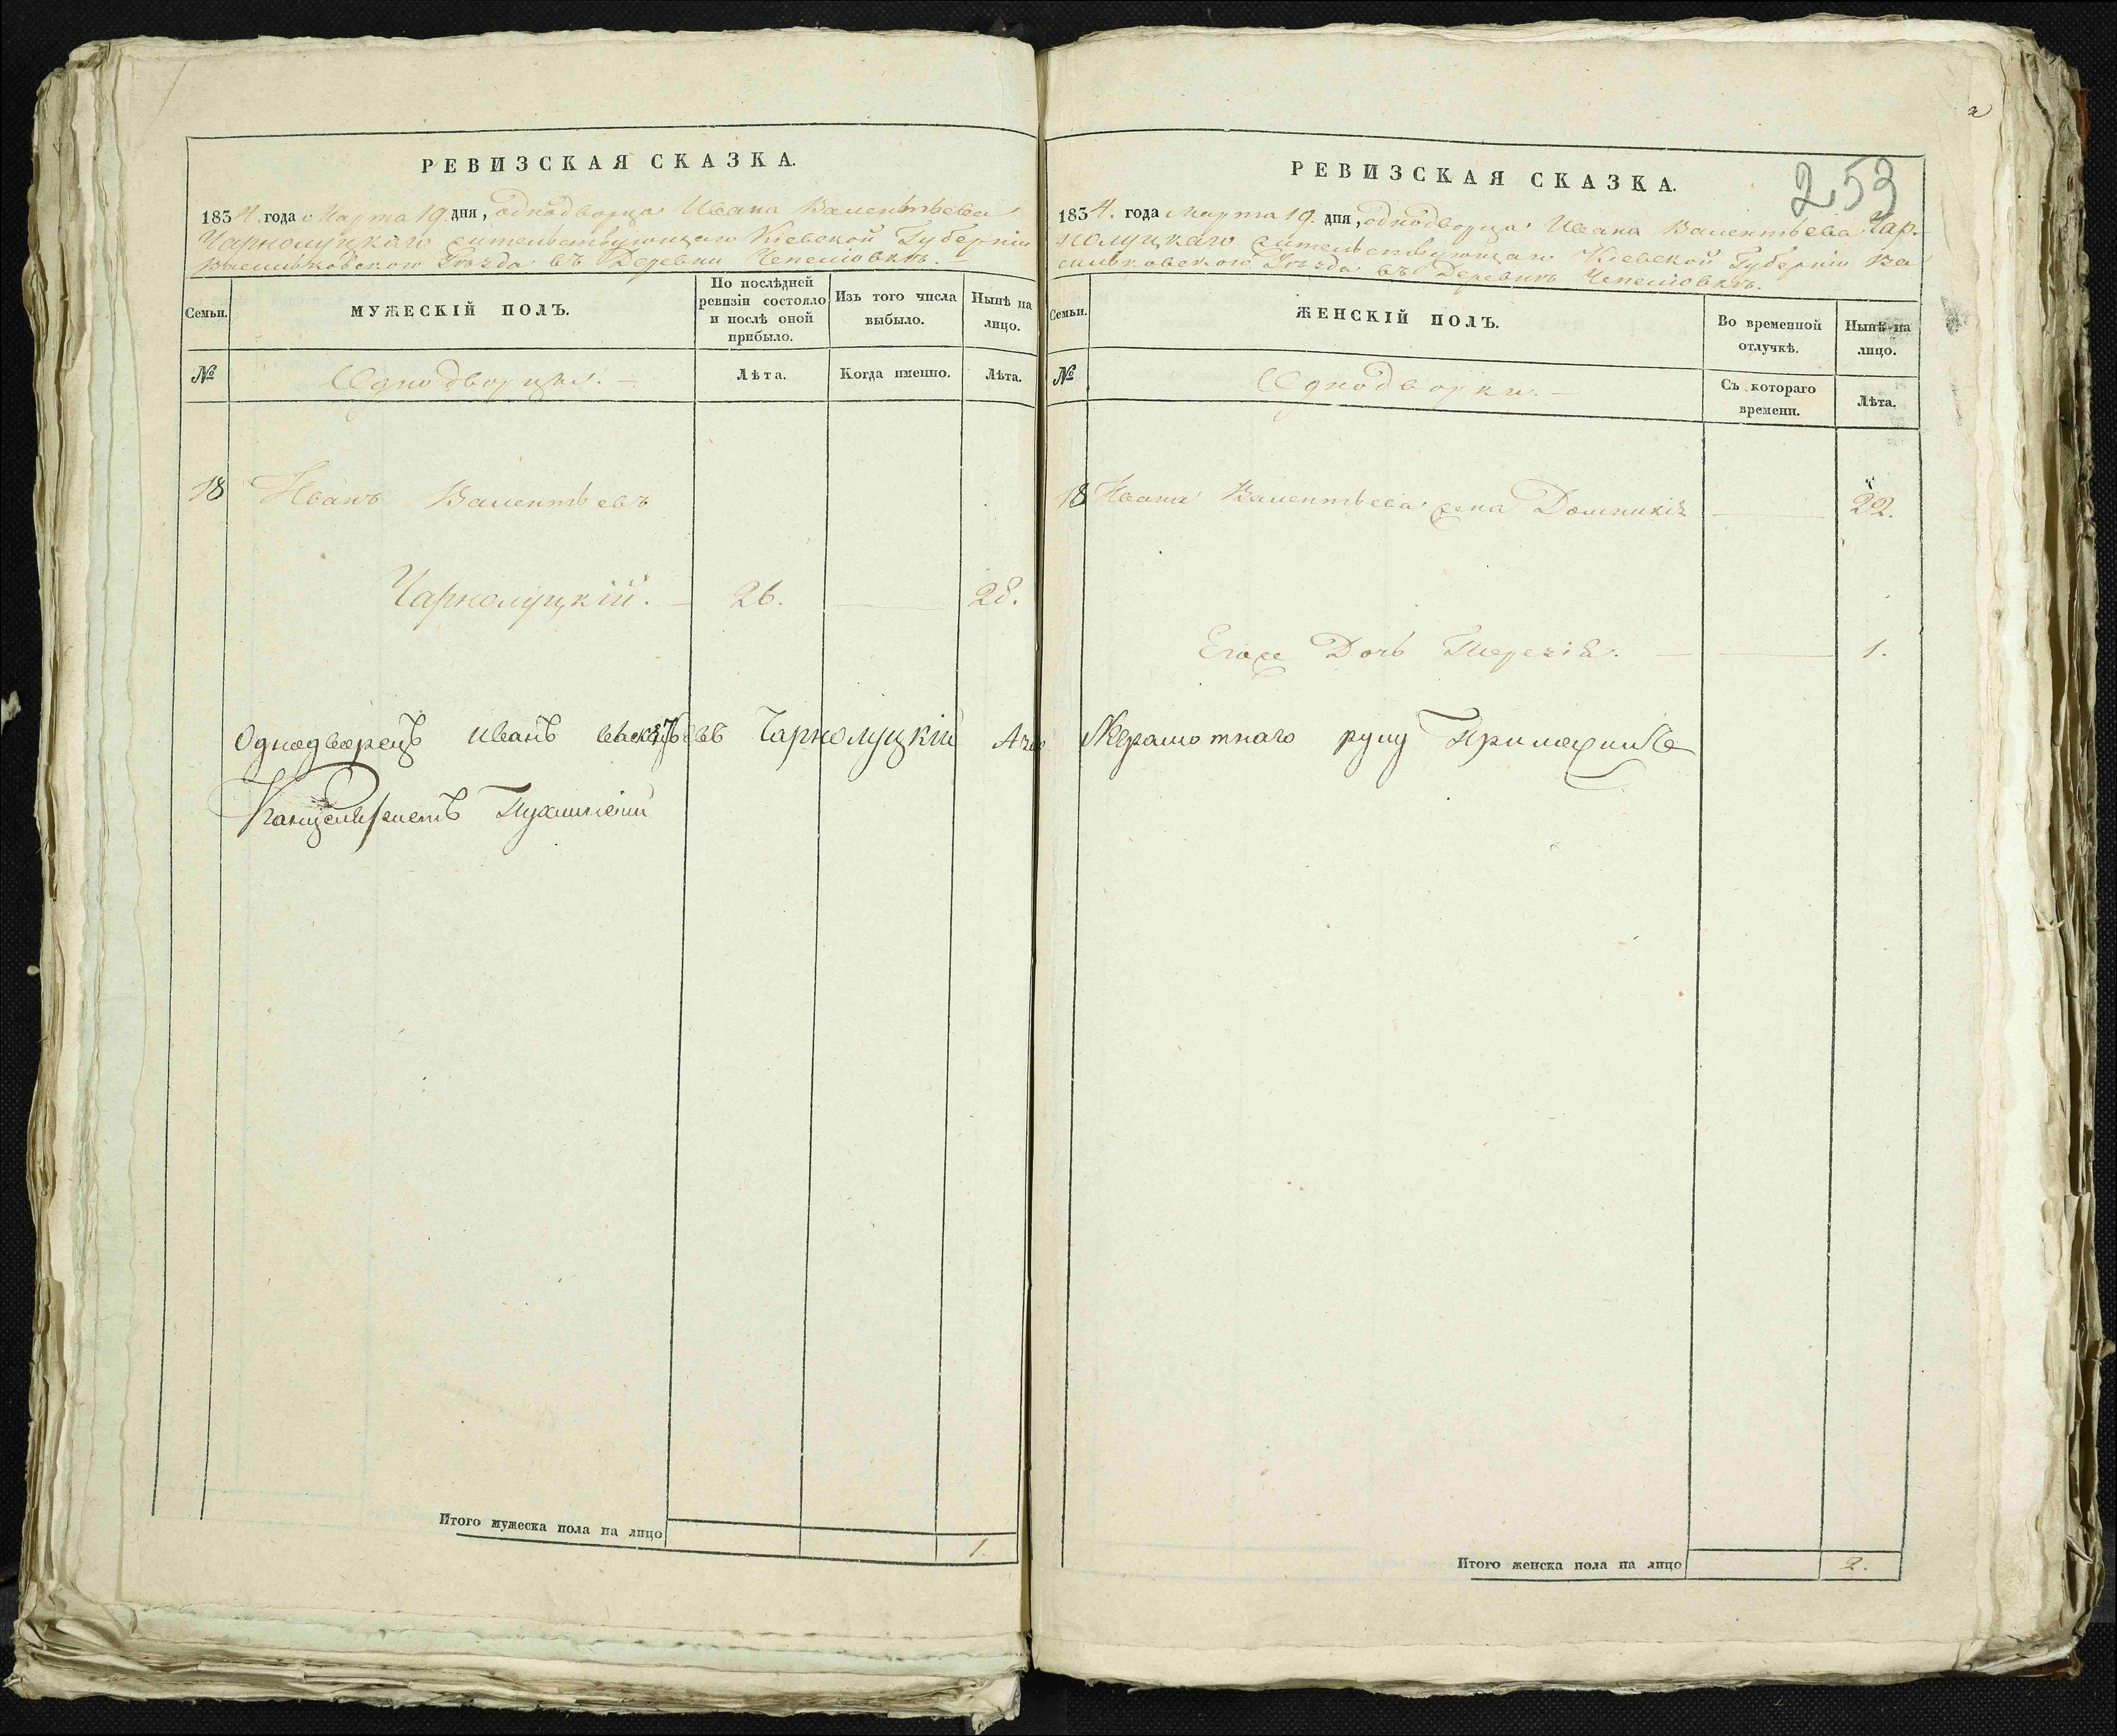 РЕВИЗСКАЯ СКАЗКА.
1834. года Марта 19. дня, однодворца Ивана Валентьева
Чарнолуцкаго жительствующаго Кіевской Губерніи
Васильковского Уезда въ Деревни Чепелювкѣ.
Семьи.
МУЖЕСКІЙ ПОЛЪ.
По послѣдней ревизіи состояло и послѣ оной прибыло.
Изъ того числа выбыло.
Нынѣ на лицо.
№
Однодворцы. —
Лѣта.
Когда именно.
Лѣта.
18 Иванъ Валентьевъ
Чарнолуцкій. — 26. — 28.
Однодворецъ иванъ Чарнолуцкій
Канцеляристъ
Итого мужеска пола на лицо
1.
253
РЕВИЗСКАЯ СКАЗКА.
1834. года Марта 19. дня, однодворца Ивана Валентьева Чар-
нолуцкаго жительствующаго Кіевской Губерніи Ва
сильковского Уезда въ Деревнѣ Чепелювкѣ.
Семьи.
ЖЕНСКІЙ ПОЛЪ.
Во временной отлучкѣ.
Нынѣ на лицо.
№
Однодворки. —
Съ котораго времени.
Лѣта.
18 Ивана Валентьева жена Домникія — 22.
Егоже Дочь Терезія. — — 1.
Неграмотнаго руку
Итого женска пола на лицо
2.